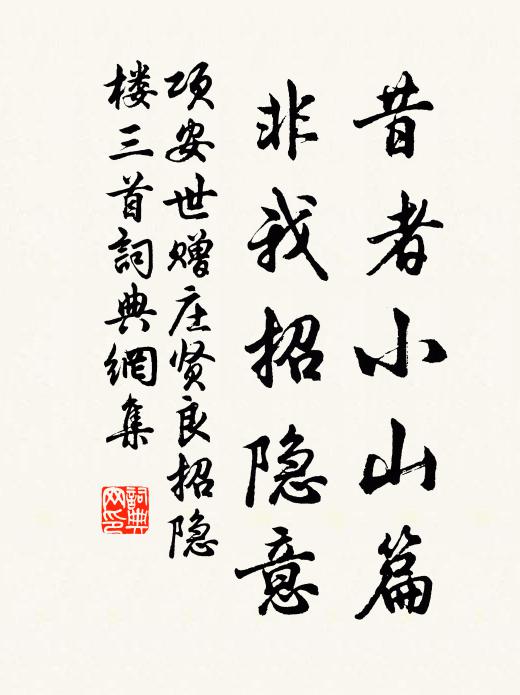 昔者小山篇
非我招隐意
项安世赠庄贤良招隐
楼三首詞典網集
詞典网印